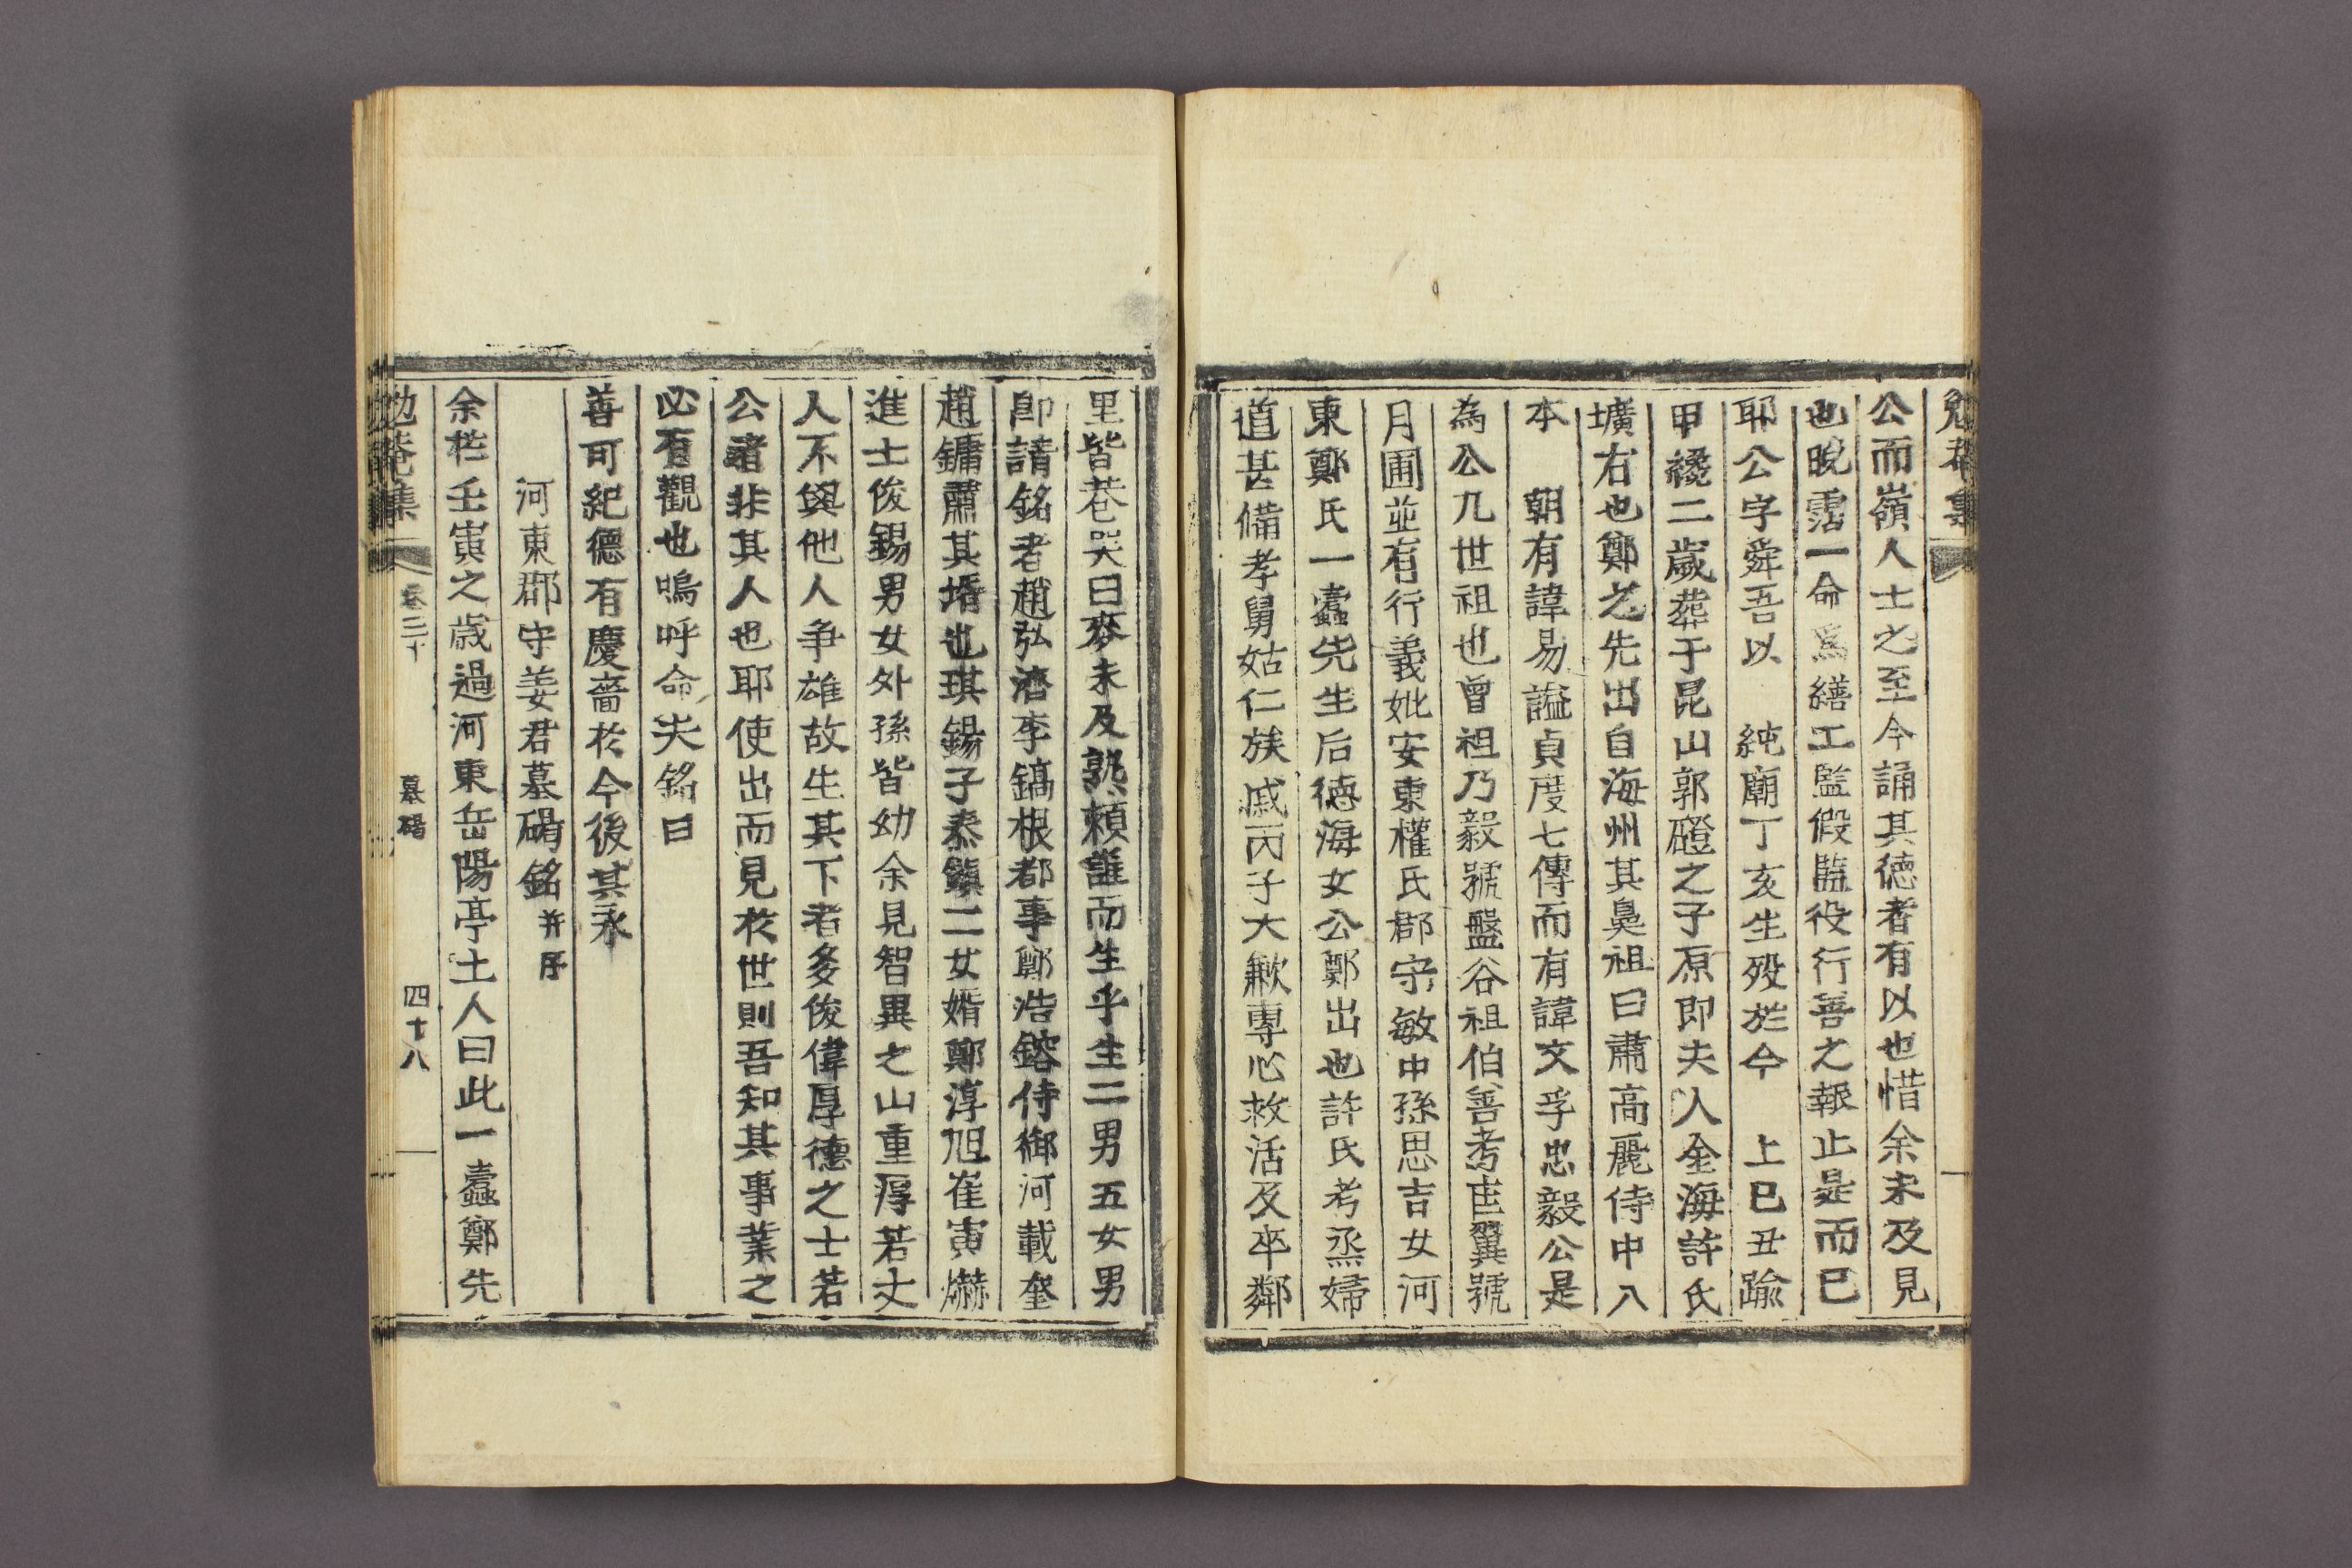 勉菴集
公而嶺人士之至今誦其德者有以也惜余未及見
也晩霑一命爲繕工監假監役行善之報止是而已
耶公字舜吾以 純廟丁亥生歿於今 上己丑踰
甲纔二歲葬于昆山郭磴之子原即夫人金海許氏
壙右也鄭之先出自海州其鼻祖曰肅高麗侍中八
本 朝有諱易謚貞度七傳而有諱文孚忠毅公是
為公九世祖也曾祖乃毅號盤谷祖伯善考匡翼號
月圃並有行義妣安東權氏郡守敏中孫思吉女河
東鄭氏一蠹先生后德海女公鄭出也許氏考烝婦
道甚備孝舅姑仁族戚丙子大歉專心救活及卒鄰
里皆巷哭曰麥未及熟賴誰而生乎生二男五女男
即請銘者趙弘濟李鎬根都事鄭浩鎔侍御河載奎
趙鏞肅其壻也琪錫子泰鎭二女婿鄭淳旭崔寅爀
進士俊錫男女外孫皆幼余見智異之山重厚若丈
人不與他人争雄故生其下者多俊偉厚德之士若
公者非其人也耶使出而見於世則吾知其事業之
必有觀也嗚呼命矣銘曰
善可紀德有慶嗇於今後其永
河東郡守姜君墓碣銘 并序
余於壬寅之歲過河東岳陽亭土人曰此一蠹鄭先
勉菴集 卷二十 墓碣 四十八